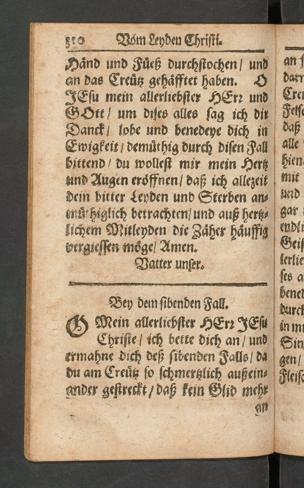 310 Vom Leyden Christi.
Händ und Füeß durchstochen / und
an das Creütz gehäfftet haben. O
JEsu mein allerliebster HErr und
GOtt / um dises alles sag ich dir
Danck / lobe und benedeye dich in
Ewigkeit / demüthig durch disen Fall
bittend / du wollest mir mein Hertz
und Augen eröffnen / daß ich allezeit
dein bitter Leyden und Sterben an-
müthiglich betrachten / und auß hertz-
lichem Mitleyden die Zäher häuffig
vergiessen möge / Amen.
Vatter unser.
Bey dem sibenden Fall.
O Mein allerliebster HErr JEsu
Christe / ich bette dich an / und
ermahne dich deß sibenden Falls / da
du am Creütz so schmertzlich außein-
ander gestreckt / daß kein Glid mehr
an